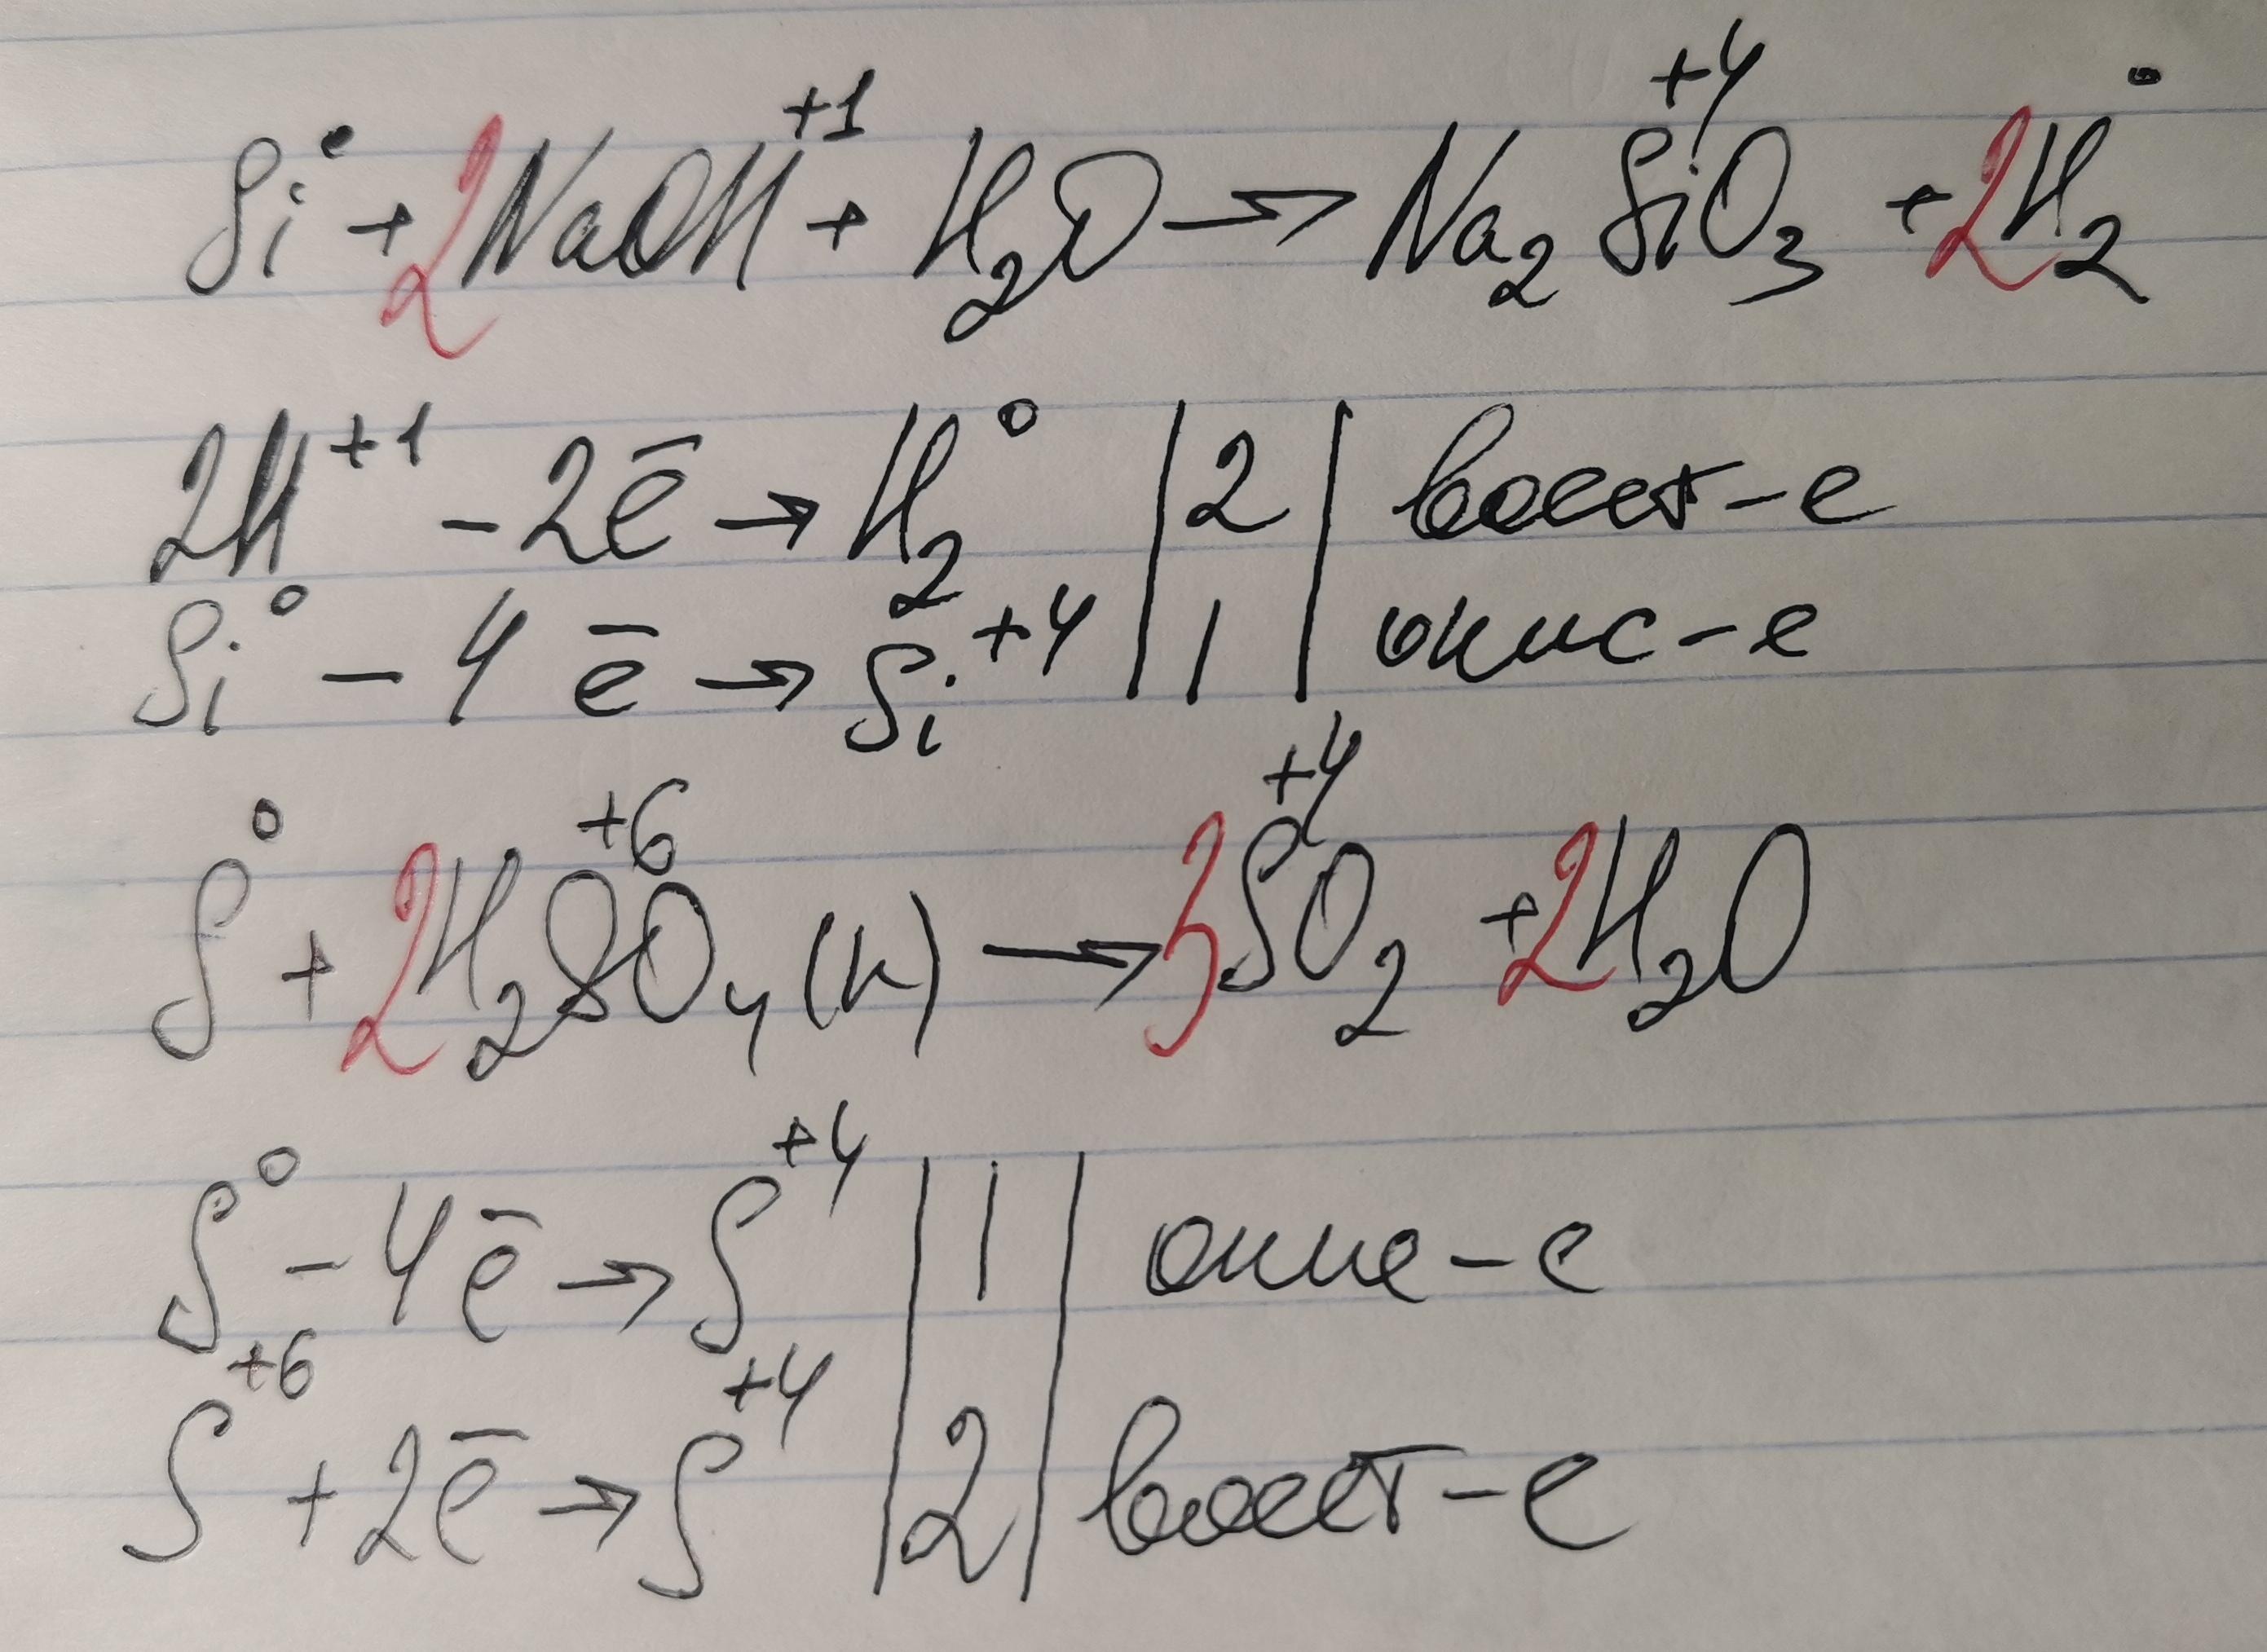 Si⁰ + 2NaOH⁺¹ + H₂O → Na₂Si⁺⁴O₃ + 2H₂⁰
2H⁺¹ - 2ē → H₂⁰ | 2 | восст-е
Si⁰ - 4ē → Si⁺⁴ | 1 | окис-е
S⁰ + 2H₂S⁺⁶O₄(к) → 3S⁺⁴O₂ + 2H₂O
S⁰ - 4ē → S⁺⁴ | 1 | окис-е
S⁺⁶ + 2ē → S⁺⁴ | 2 | восст-е